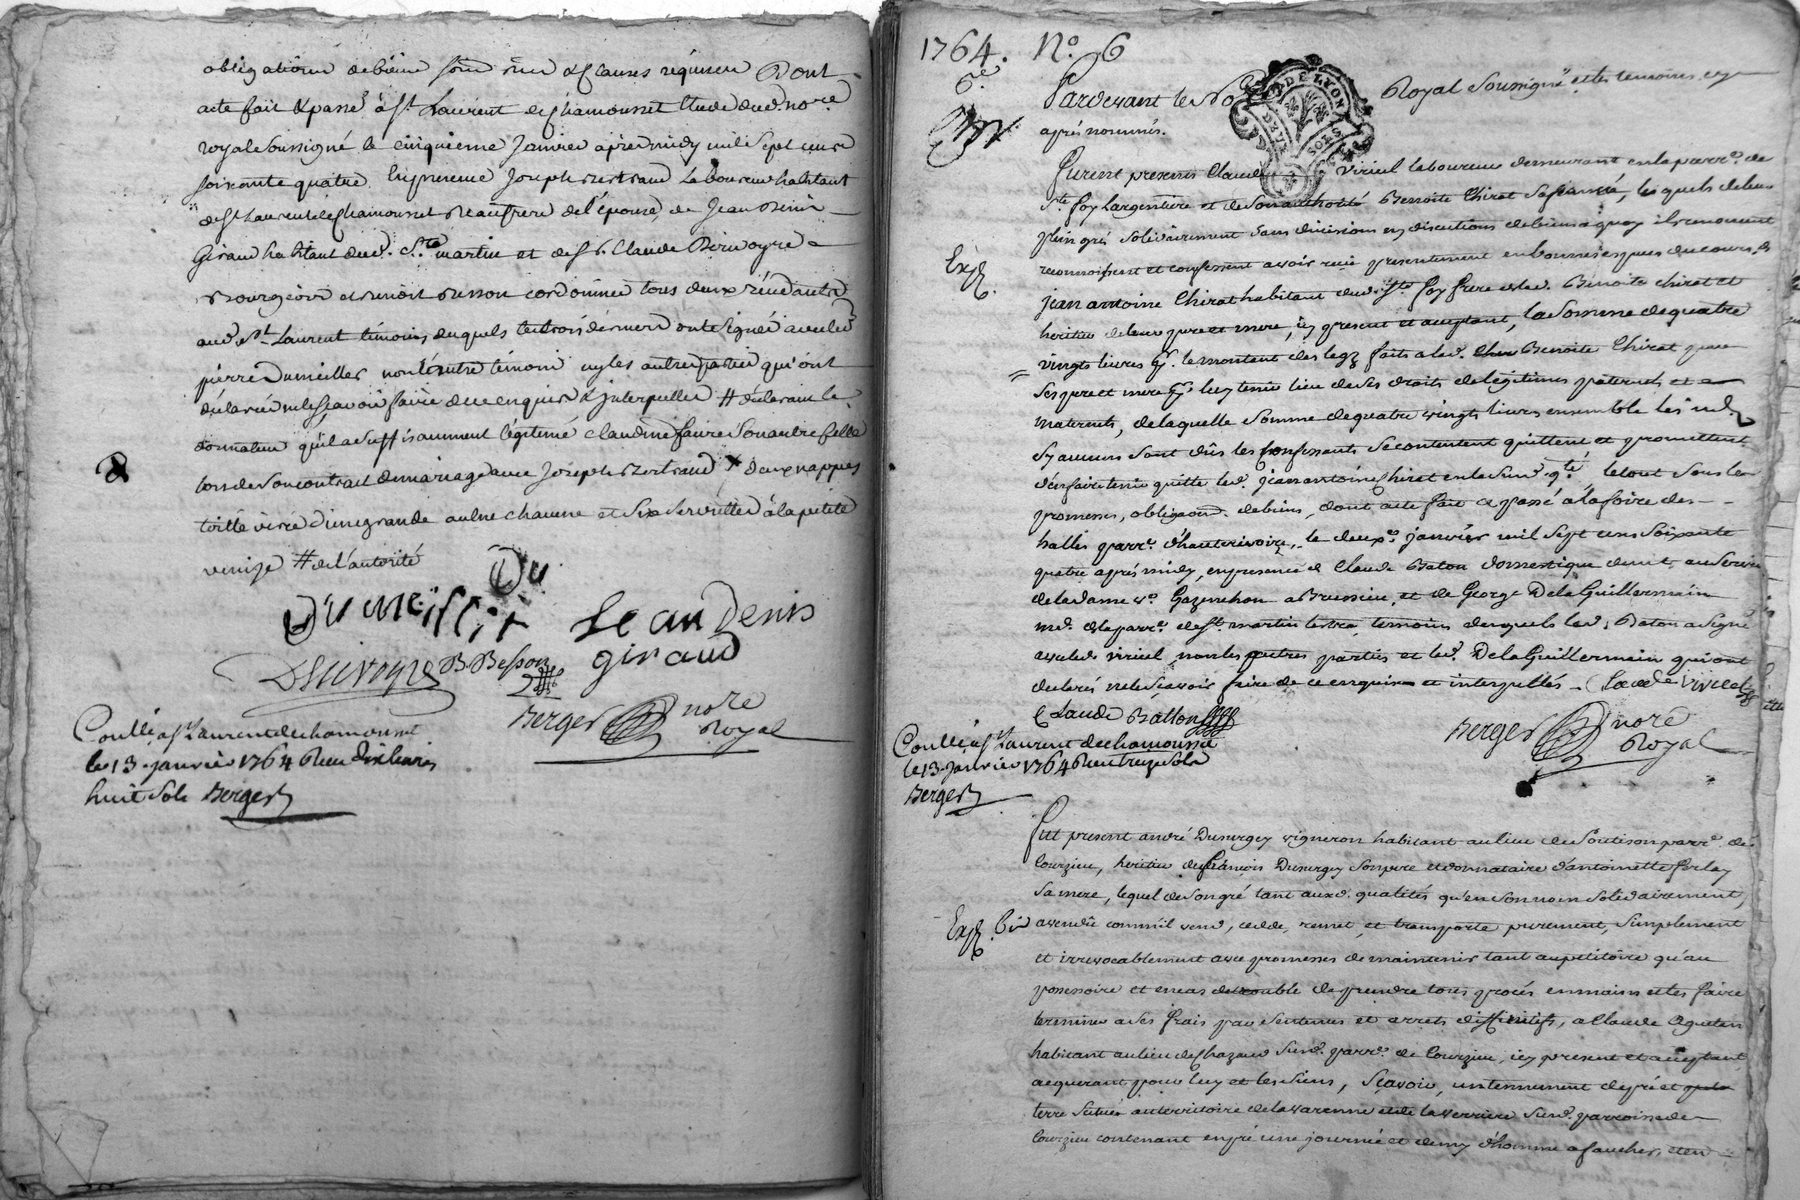 obligations de biens soub. rien & clauses requises Dont
acte fait & passé à St. Laurent de Chamousset Etude dud. no.re
royal soussigné le cinquieme Janvier après midy mil sept cens
soixante quatre. En presence Joseph Bertrand Laboureur habitant
de St. Laurent de Chamousset Beaufrere de l'épouse de Jean Denis
Giraud habitant dud. St. martin et de Sr. Claude
Bourgeois et Benoit Besson cordonnier tous deux résidants
aud. St. Laurent témoins desquels les trois derniers ont signé avec led.
pierre Dumeillier non l'autre témoin ny les autres parties qui ont
déclaré ne le sçavoir faire de ce enquis & interpellés # déclarant le
donnateur qu'il a suffisamment légitimé Claudine faure sonautre fille
lors de son contrat de mariage avec Joseph Bertrand X deux nappes
toille d'une grande aulne chacune et six serviettes à la petite
venize # de l'autorité
Du
Dumeillier Jean Denis
giraud
B. Besson
Berger nore
Royal
Conllé a St. Laurent de chamousset
le 13 janvier 1764 Receu dix livres
huit sols Berger
1764. N.o 6
6.e
Pardevant le No Royal soussigné et les temoins cy
après nommés.
DE LYON
Furent presents Claude Viricel laboureur demeurant en la parr.e de
Ste. foy Largentiere et de son authorité Benoite Chirat sa femme, lesquels de leur
plein gré solidairement sans division ny discution de biens a quoy ils renoncent
Exp.
reconnoissent et confessent avoir reçu presentement en bonnes especes du cours de
jean antoine Chirat habitant dud. Ste foy frere de lad. Benoite chirat et
heritier de leurs pere et mere, icy present et acceptant, la somme de quatre
vingts livres p.r le montant des legz faits a lad. Benoite Chirat par
ses pere et mere p.r luy tenir lieu de ses droits de légitimes paternels et
maternels, de laquelle somme de quatre vingts livres ensemble les
sy aucuns sont dûs les confessants se contentent quittent et promettent
d'en faire tenir quitte led. jean antoine Chirat en lad. qté. le tout sous les
promesses, obligaons. de biens, dont acte fait et passé a la foire des
halles parr.e d'hauterivoire, le deux.e janvier mil sept cens soixante
quatre après midy, en presence de Claude Baton domestique demt. au service
de la dame v.e Gazanchon a Brussieu, et de George Dela Guillermain
md. de la parr.e de St. martin lestra temoins desquels led. Baton a signé
avec led. viricel, non les autres parties et led. Dela Guillermain qui ont
declarés ne le sçavoir faire de ce enquis et interpellés. Claude Viricel
Claude Batton
Berger nore
Royal
Conllé a St. Laurent de chamousset
le 13 janvier 1764 Receu treize sols
Berger
Fut present andré Dusurgey vigneron habitant au lieu de parr.e de
Courzieu, heritier de françois Dusurgey son pere et donnataire d'antoinette ferlay
sa mere, lequel de son gré tant auxd. qualités qu'en son nom solidairement,
Exp. bis
a vendû comm'il vend, cedde, remet, et transporte purement, simplement
et irrevocablement avec promesses de maintenir tant au petitoire qu'au
possessoire et en cas de trouble de prendre tous procès en mains et les faire
terminer a ses frais par sentences et arrets diffinitifs, a Claude
habitant au lieu de susd. parr.e de Courzieu, icy present et acceptant
acquerant pour luy et les siens, Sçavoir, un tennement de pré et
terre situés au territoire de la varenne et de la verriere susd. parroisse de
Courzieu contenant en pré une journée et demy d'homme a faucher, et en